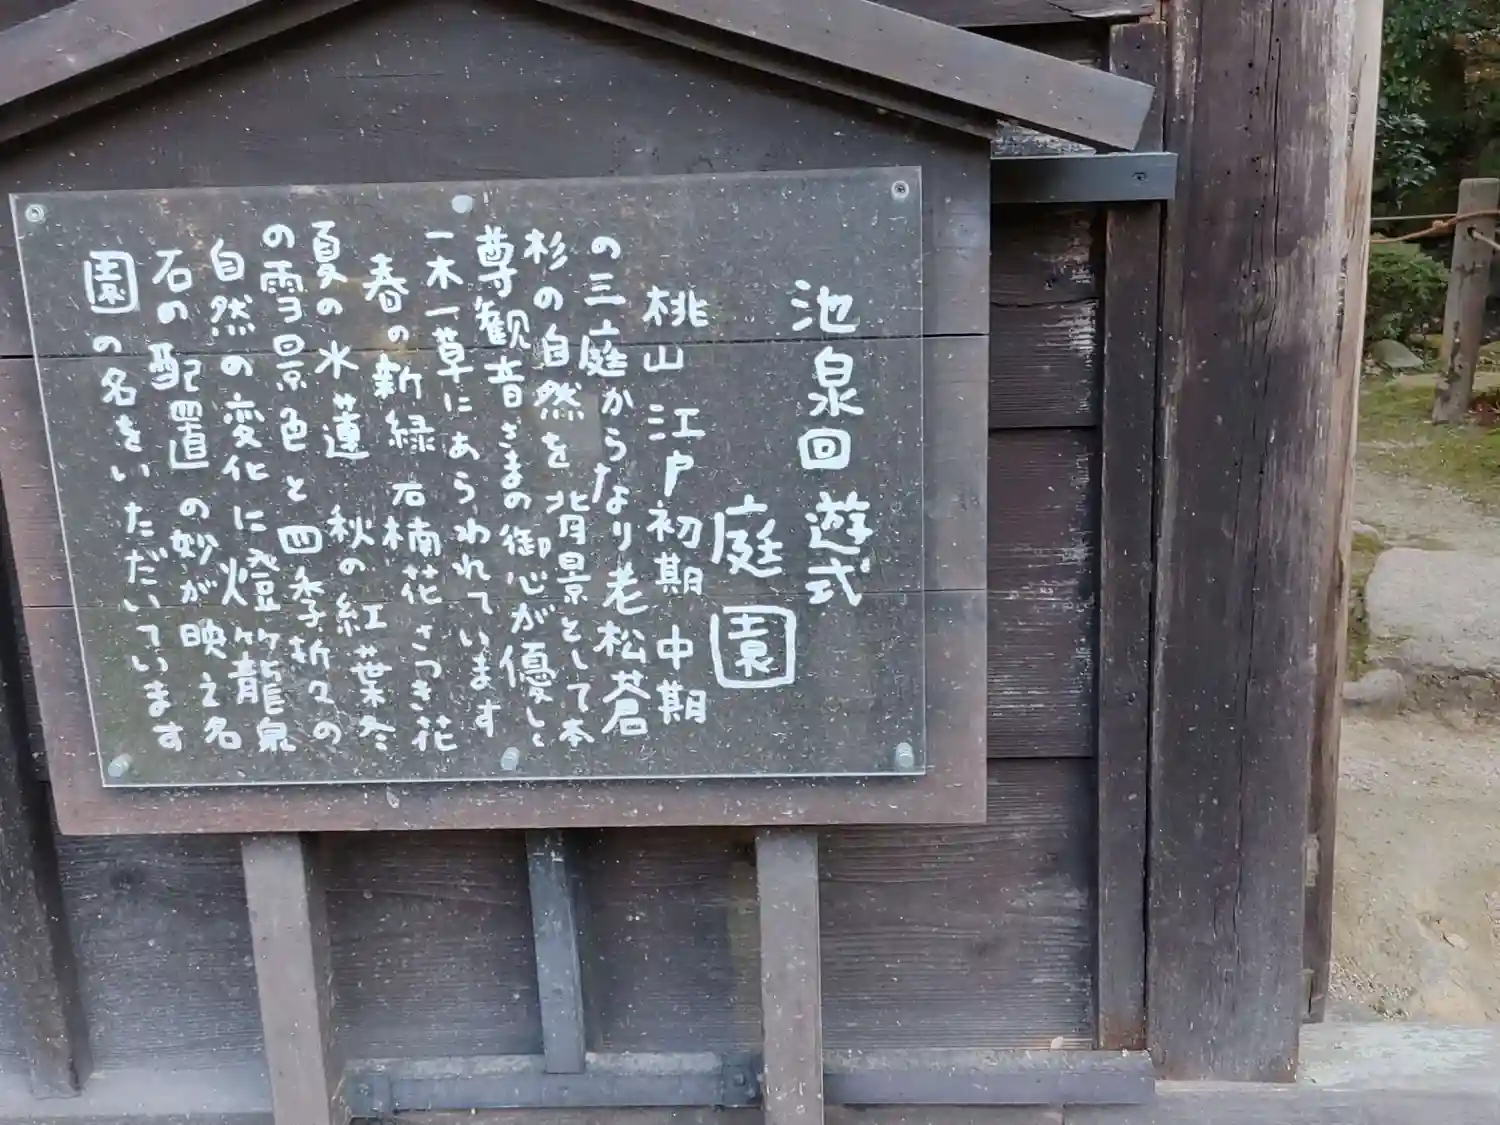 池泉回遊式
庭園
桃山江戸初期中期
の三庭からなり老松蒼
杉の自然を背景として本
尊観音さまの御心が優しく
一木一草にあらわれています
春の新緑石楠花さつき花
夏の水蓮秋の紅葉冬
の雪景色と四季折々の
自然の変化に燈籠泉
石の配置の妙が映え名
園の名をいただいています